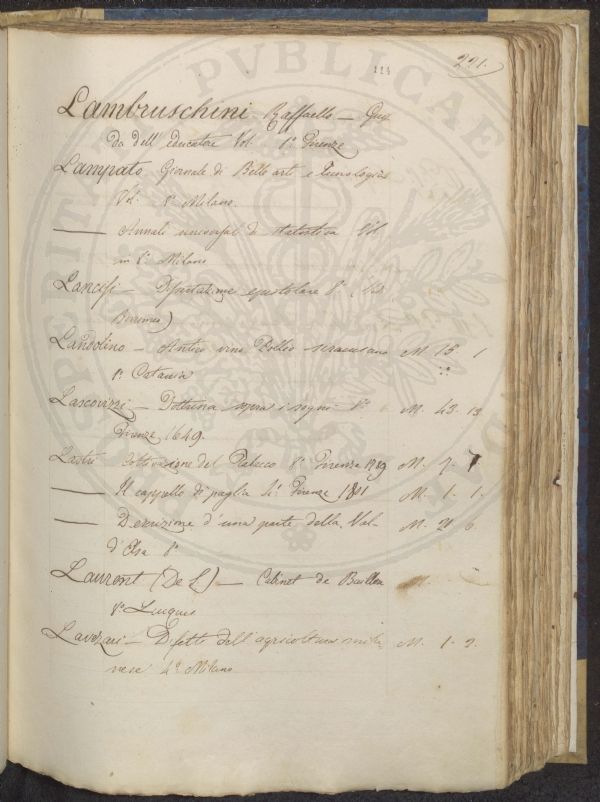 114
221.
Lambruschini Raffaello — Gui
da dell' educatore Vol. 8° Firenze
Lampato Giornale di Belle arti e Tecnologia
Vol. 8° Milano.
— Annali universali di statistica Vol.
in 8° Milano
— Dissertazione epistolare 8°
Landolino — Antico vino Pollio siracusano M. 15. 1
8° Catania
— Dottrina sopra i sogni 8° M. 43. 13
Firenze 1649.
Lastri Coltivazione del Tabacco 8° Firenze M. 7.
— Il cappello di paglia 4° Firenze 1801 M. 1. 1.
— Descrizione d'una parte della Val- M. 6.
d'Elsa 8°
Laurent (De L.) — Cabinet de M.
8° Lucques
Lavezari — Difetti dell'agricoltura mila M. 1. 2.
nese 4° Milano
PVBLICAE